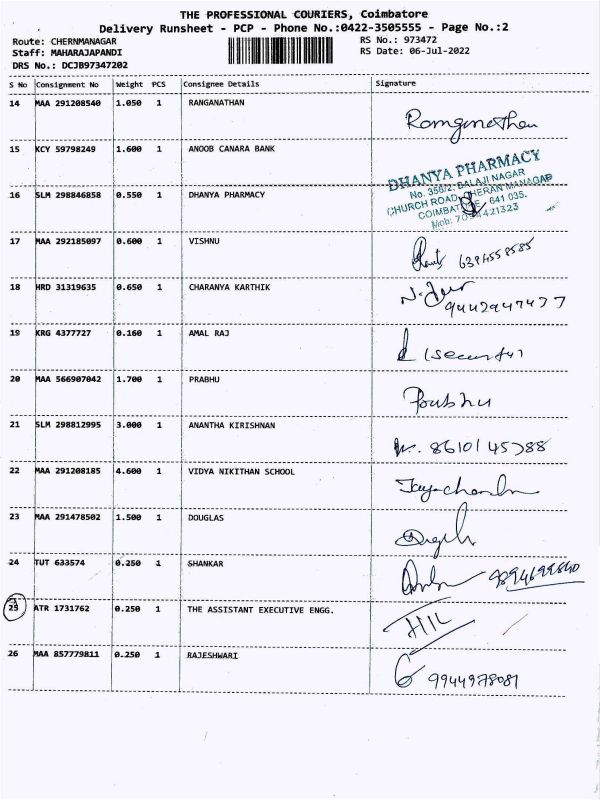 THE PROFESSIONAL COURIERS, Coimbatore
Delivery Runsheet - PCP - Phone No.:0422-3505555 - Page No.:2
Route: CHERNMANAGAR
Staff: MAHARAJAPANDI
DRS No.: DCJB97347202
RS No.: 973472
RS Date: 06-Jul-2022
S No Consignment No Weight PCS Consignee Details Signature
14 MAA 291208540 1.050 1 RANGANATHAN
15 KCY 59798249 1.600 1 ANOOB CANARA BANK
DHANYA PHARMACY
No. 356/2, BALAJI NAGAR
CHURCH ROAD, CHERAN MANAGAR
COIMBATORE 641 035.
16 SLM 298846858 0.550 1 DHANYA PHARMACY
17 MAA 292185097 0.600 1 VISHNU
18 HRD 31319635 0.650 1 CHARANYA KARTHIK 9442947477
19 KRG 4377727 0.160 1 AMAL RAJ
20 MAA 566907042 1.700 1 PRABHU Prabhu
21 SLM 298812995 3.000 1 ANANTHA KIRISHNAN 8610145788
22 MAA 291208185 4.600 1 VIDYA NIKITHAN SCHOOL
23 MAA 291478502 1.500 1 DOUGLAS
24 TUT 633574 0.250 1 SHANKAR
25 ATR 1731762 0.250 1 THE ASSISTANT EXECUTIVE ENGG.
26 MAA 857779811 0.250 1 RAJESHWARI 9944978081